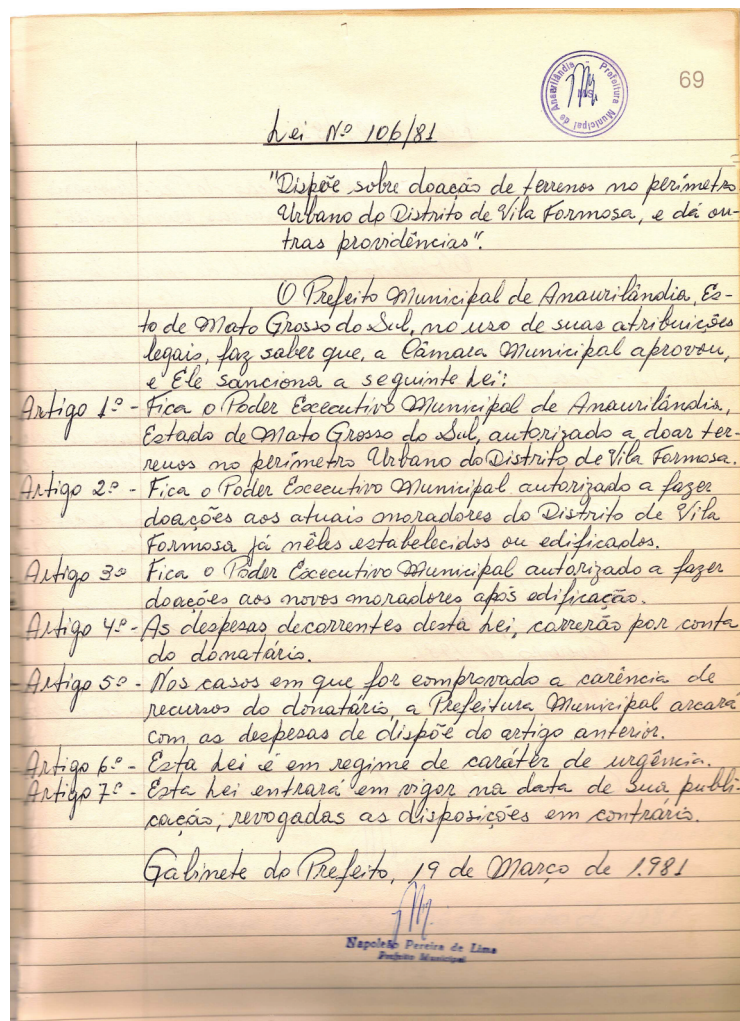 Prefeitura Municipal de Anaurilândia
MS
69
Lei Nº 106/81
"Dispõe sobre doação de terrenos no perímetro
Urbano do Distrito de Vila Formosa, e dá ou-
tras providências".
O Prefeito Municipal de Anaurilândia, Es-
to de Mato Grosso do Sul, no uso de suas atribuições
legais, faz saber que, a Câmara Municipal aprovou,
e Ele sanciona a seguinte Lei:
Artigo 1º - Fica o Poder Executivo Municipal de Anaurilândia,
Estado de Mato Grosso do Sul, autorizado a doar ter-
renos no perímetro Urbano do Distrito de Vila Formosa.
Artigo 2º - Fica o Poder Excecutivo Municipal autorizado a fazer
doações aos atuais moradores do Distrito de Vila
Formosa já nêles estabelecidos ou edificados.
Artigo 3º Fica o Poder Excecutivo Municipal autorizado a fazer
doações aos novos moradores após edificação.
Artigo 4º - As despesas decorrentes desta Lei, correrão por conta
do donatário.
Artigo 5º - Nos casos em que for comprovado a carência de
recursos do donatário, a Prefeitura Municipal arcará
com as despesas de dispõe do artigo anterior.
Artigo 6º - Esta Lei é em regime de caráter de urgência.
Artigo 7º - Esta Lei entrará em vigor na data de sua publi-
cação, revogadas as disposições em contrário.
Gabinete do Prefeito, 19 de Março de 1.981
Napoleão Pereira de Lima
Prefeito Municipal